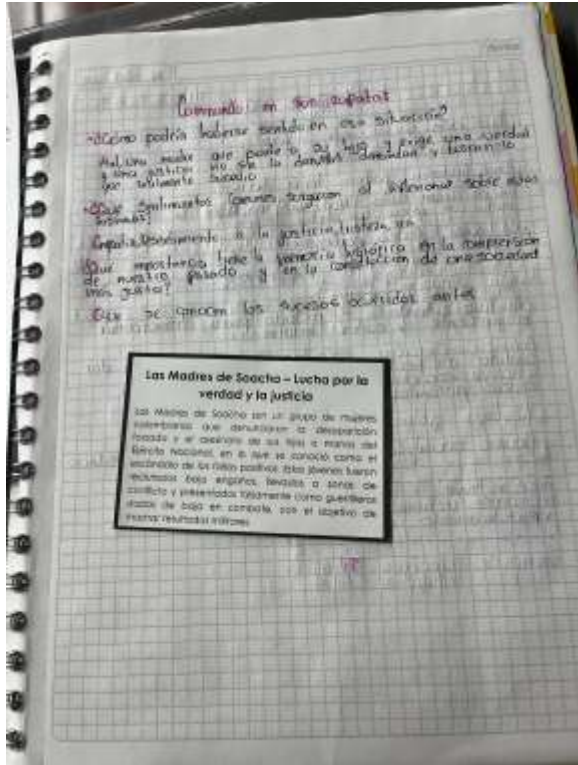 Caminando en sus zapatos
¿Cómo podría haberse sentido en esa situación?
Mal, una madre que pierde a su hijo y exige una verdad
y una justicia no se la
que realmente sucedió
¿Qué sentimientos comunes surgieron al sobre estas
Empatía, a la justicia, tristeza,
¿Qué importancia tiene la memoria histórica en la comprensión
de nuestro pasado y en la construcción de una sociedad
más justa?
Que se conocen los sucesos ocurridos antes
Las Madres de Soacha – Lucha por la
verdad y la justicia
Las Madres de Soacha son un grupo de mujeres
colombianas que denunciaron la desaparición
forzada y el asesinato de sus hijos a manos del
Ejército Nacional, en lo que se conoció como el
escándalo de los falsos positivos. Estos jóvenes fueron
reclutados bajo engaños, llevados a zonas de
conflicto y presentados falsamente como guerrilleros
dados de baja en combate, con el objetivo de
mostrar resultados militares